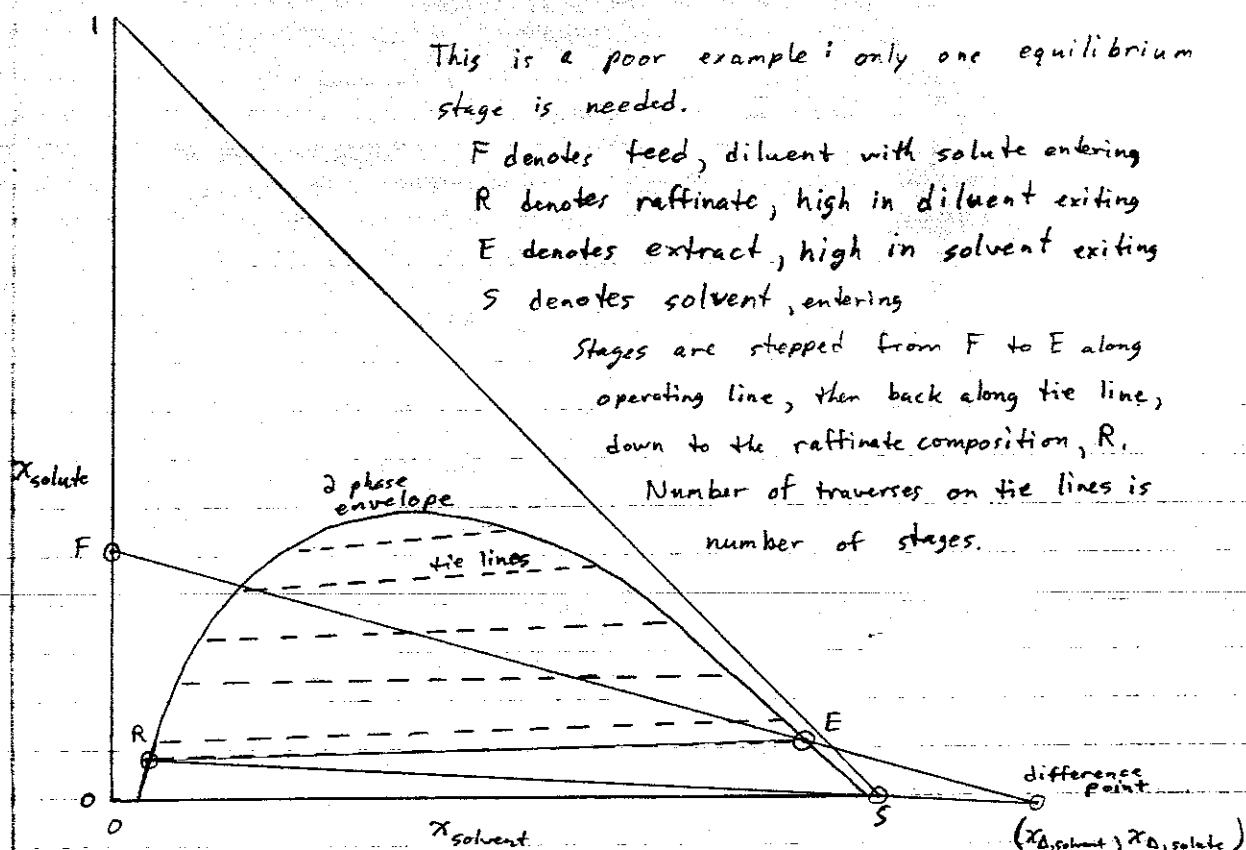 1
This is a poor example: only one equilibrium
stage is needed.
F denotes feed, diluent with solute entering
R denotes raffinate, high in diluent exiting
E denotes extract, high in solvent exiting
S denotes solvent, entering
Stages are stepped from F to E along
operating line, then back along tie line,
down to the raffinate composition, R.
Number of traverses on tie lines is
number of stages.
x solute
2 phase
envelope
F
tie lines
R
E
difference
point
0
0
x solvent
S
(xΔ,solvent, xΔ,solute)